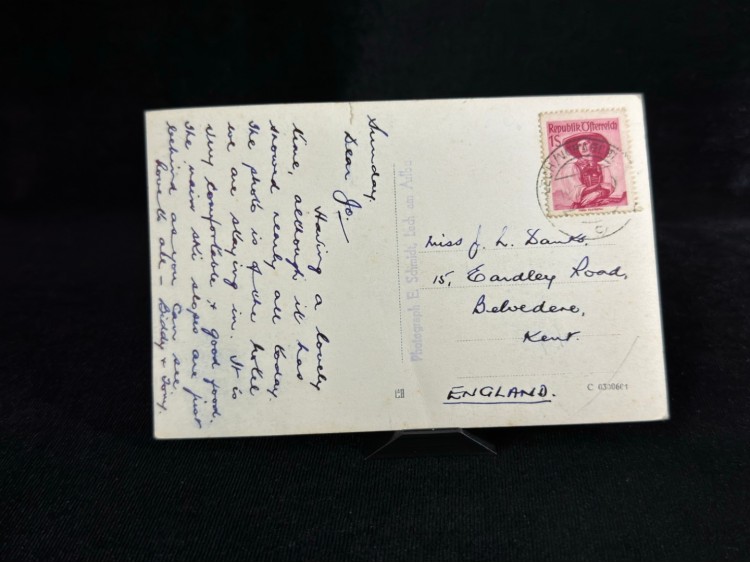 Sunday.
Dear Jo.
Having a lovely
time, although it has
snowed nearly all today
The photo is of the hotel
we are staying in. It is
very comfortable & good food.
The main ski slopes are just
behind as you can see.
Love to all – Biddy & Tony.
Photograph E. Schmidt, Lech am Arlberg
Republik Österreich
1S
Miss J. L. Danks
15, Eardley Road,
Belvedere,
Kent.
ENGLAND.